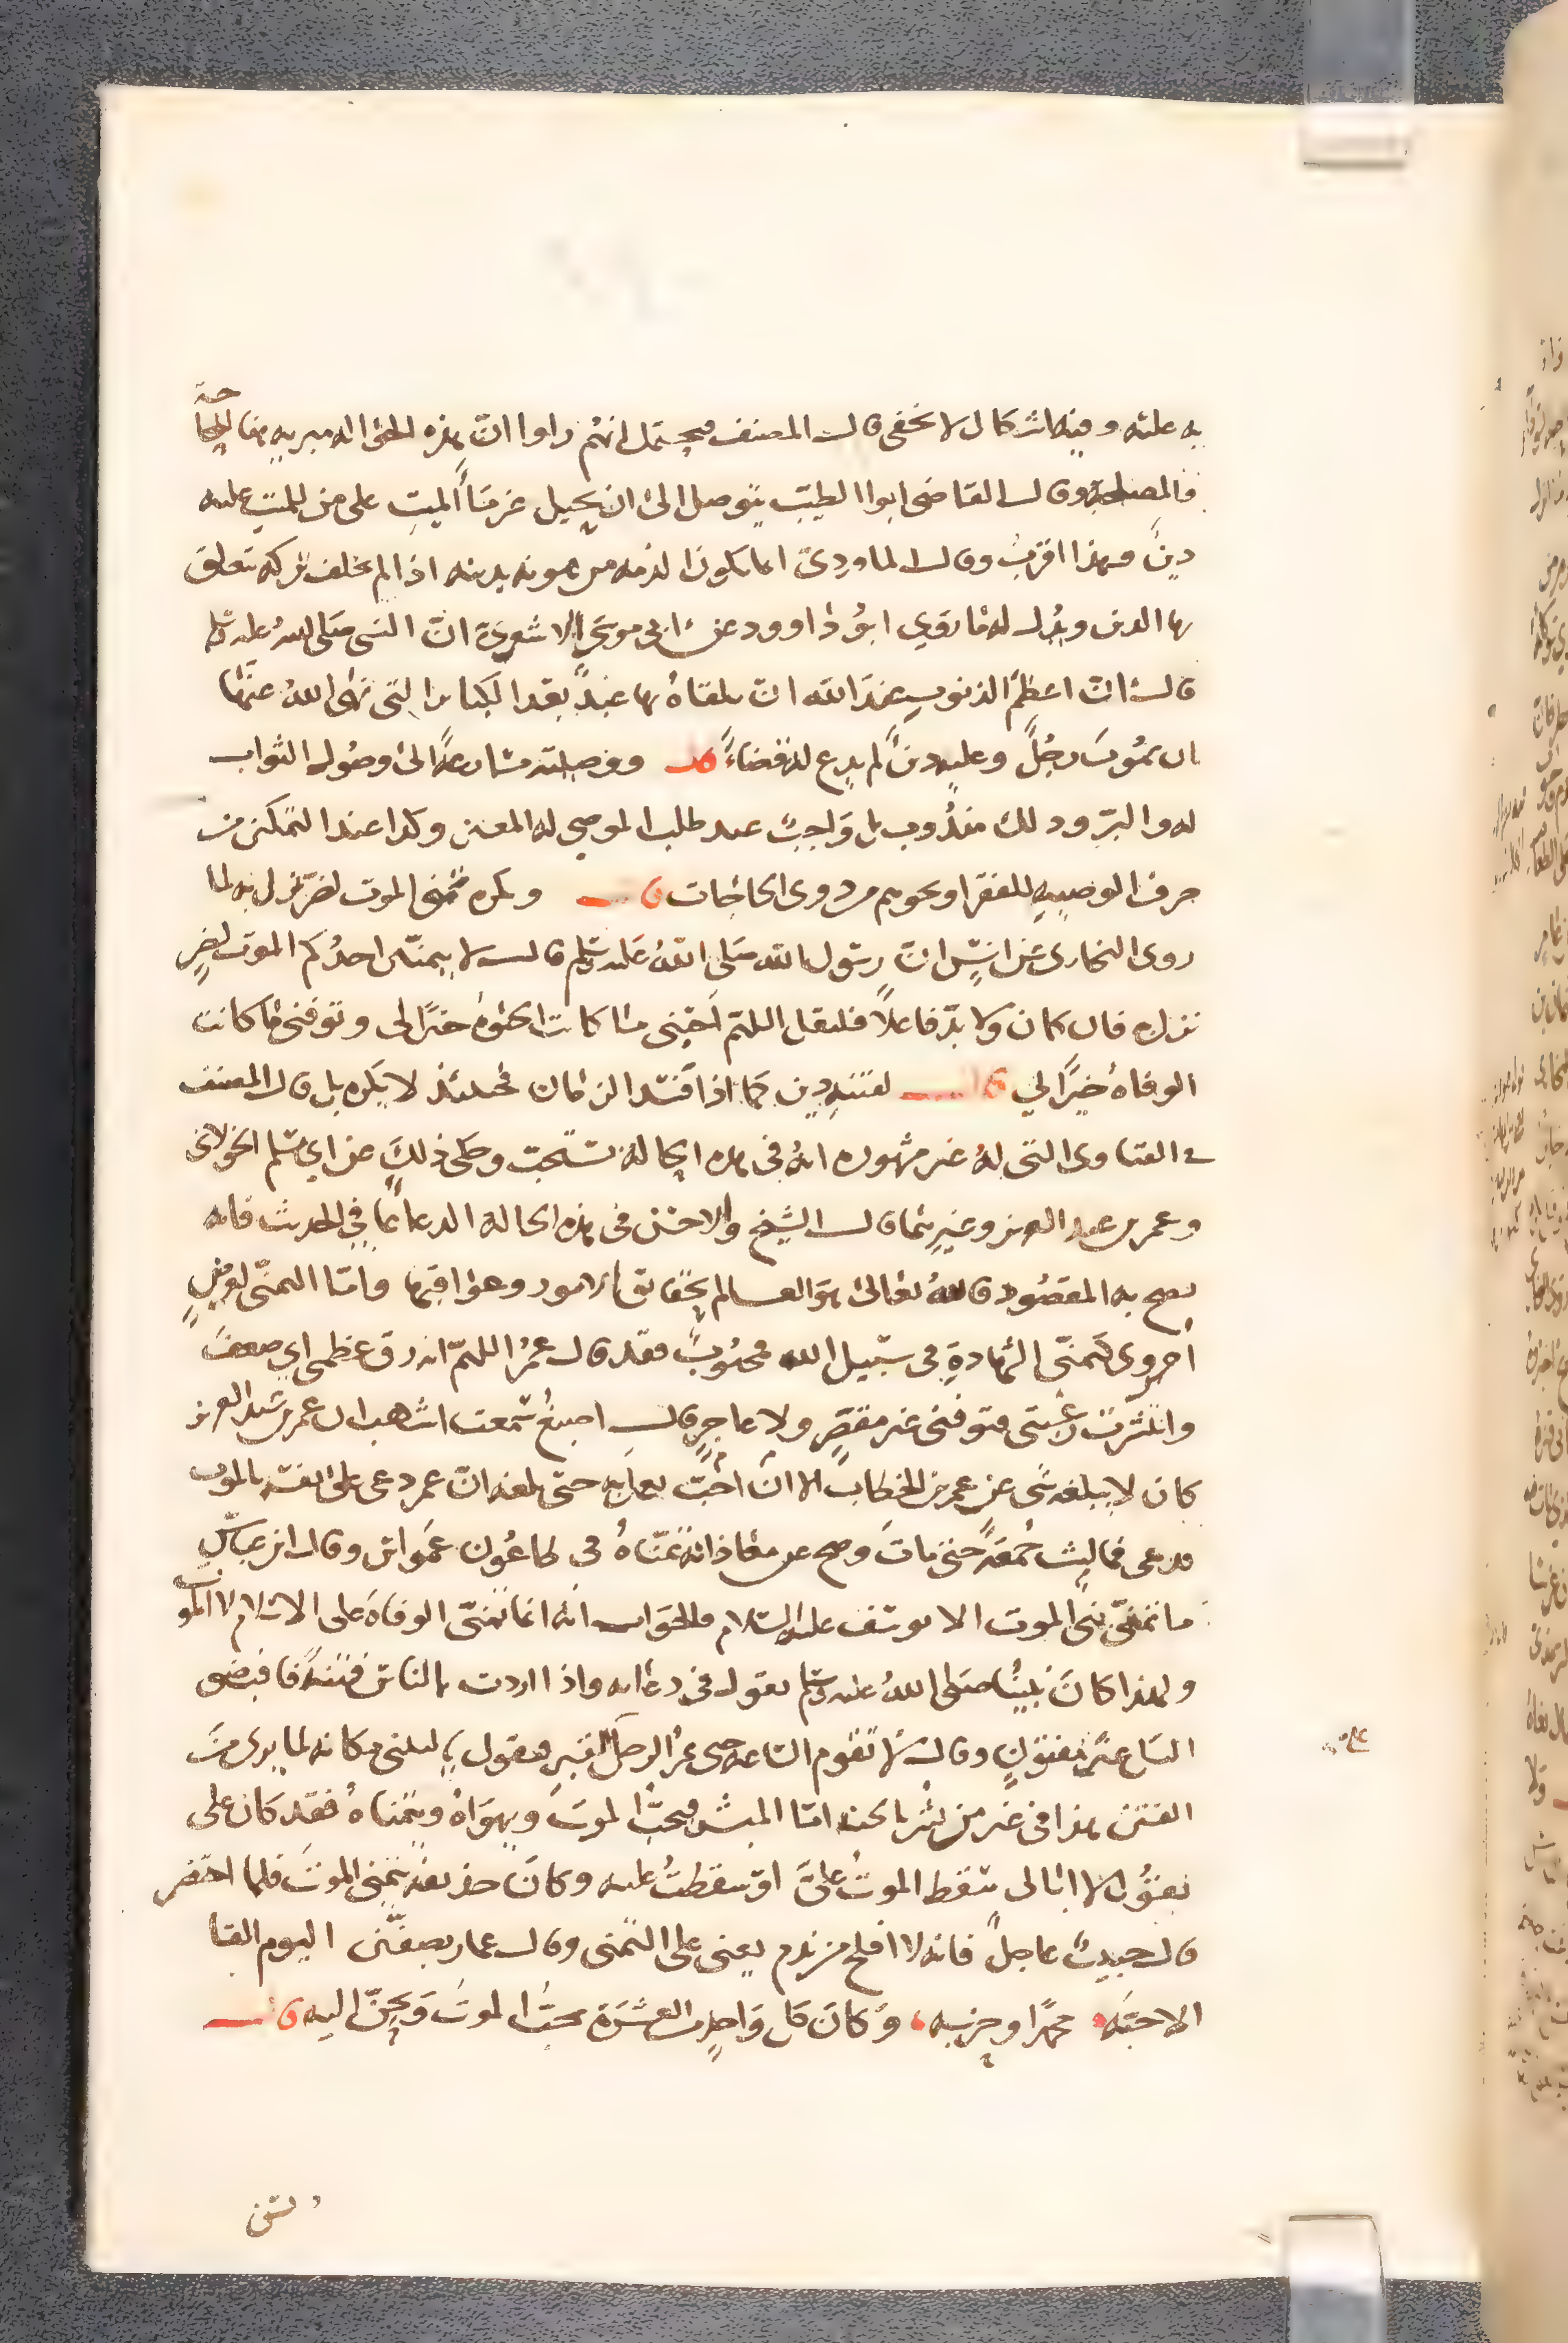 به عليه وفيه اشكال لا يخفى قال المصنف فيحتمل انهم راوا ان هذه الحوالة مبرية هنا للحاجة
والمصلحة وقال القاضي ابوا الطيب يتوصل الى ان يحيل غرماً الميت على من للميت عليه
دين وهذا اقرب وقال الماوردي انما يكون الذمه مرهونه بدينه اذا لم يخلف تركه تتعلق
بها الدين ويدل له ما روي ابو داوود عن ابي موسى الاشعري ان النبي صلى الله عليه وسلم
قال ان اعظم الذنوب عند الله ان يلقاه بها عبد بعد الكبائر التي نهى الله عنها
ان يموت رجل وعليه دين لم يدع له قضاء قال ووصيته مسارعة الى وصول الثواب
له والبر وذلك مندوب بل واجب عند طلب الموصى له المعين وكذا عند التمكن من
صرف الوصية للفقرا ونحوهم من ذوى الحاجات قال ويكره تمنى الموت لضر نزل به لما
روى البخارى عن انس ان رسول الله صلى الله عليه وسلم قال لا يتمنين احدكم الموت لضر
نزل به فان كان ولا بد فاعلا فليقل اللهم احيني ما كانت الحيوة خيرًا لى وتوفني ما كانت
الوفاة خيرًا لي قال لفتنة دين كما اذا فسد الزمان فحينئذ لا يكره بل قال المصنف
في الفتاوى التي له غير مشهوره انه في هذه الحالة تستحب وحكى ذلك عن ابي مسلم الخولاني
وعمر بن عبد العزيز وغيرهما قال الشيخ والاحسن في هذه الحالة الدعا بما في الحديث فانه
يصح به المقصود فالله تعالى هو العالم بحقائق الامور وعواقبها واما التمني لغرض
اخروى كتمني الشهادة في سبيل الله محبوب فقد قال عمر اللهم انه رق عظمى اي ضعف
وانتشرت رعيتي فتوفني غير مقصر ولا عاجز قال اصبغ سمعت اشهب ان عمر بن عبد العزيز
كان لا يبلغه شى عن عمر بن الخطاب الا ان احب يعمل به حتى بلغه ان عمر دعى على نفسه بالموت
فدعى فما لبث جمعة حتى مات وصح عن معاذ انه تمناه في طاعون عمواس وقال ابن عباس
ما تمنى نبى الموت الا يوسف عليه السلام والجواب انه انما تمنى الوفاة على الاسلام لا الموت
ولهذا كان نبينا صلى الله عليه وسلم يقول في دعائه واذا اردت بالناس فتنة فاقبضني
اليك غير مفتون وقال لا تقوم الساعة حتى يمر الرجل بالقبر فيقول يا ليتني مكانه لما يرى من
الفتن هذا في غير من بشر بالجنه اما المبشر فيحب الموت ويهواه ويتمناه فقد كان على
يقول لا ابالى سقط الموت على او سقطت عليه وكان حذيفه يتمنى الموت فلما احتضر
قال حبيب عاجل فانه لا افلح من ندم يعني على التمنى وقال عمار بصفين اليوم القا
الاحبه محمدًا وحزبه وكان كل واحد من العشرة يحب الموت ويحن اليه قال